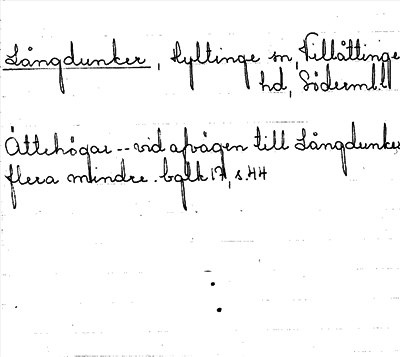 Långdunker, Hyltinge sn, Villåttinge
hd, Söderml.
Ättehögar -- vid afvägen till Långdunker
flera mindre. bglk 17, s. 44